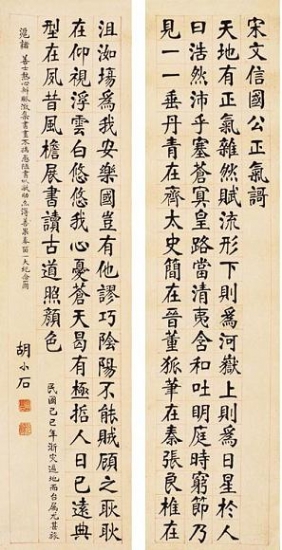 宋文信國公正氣謌
天地有正氣雜然賦流形下則為河嶽上則為日星於人
曰浩然沛乎塞蒼冥皇路當清夷含和吐明庭時窮節乃
見一一垂丹青在齊太史簡在晉董狐筆在秦張良椎在
沮洳塲為我安樂國豈有他謬巧陰陽不能賊顧之耿耿
在仰視浮雲白悠悠我心憂蒼天曷有極哲人日已遠典
型在夙昔風檐展書讀古道照顏色
民國己巳年浙災遍地而台屬尤甚旅
滬諸善士熱心辦賑徵集書畫不揣愚陋書以報命
胡小石